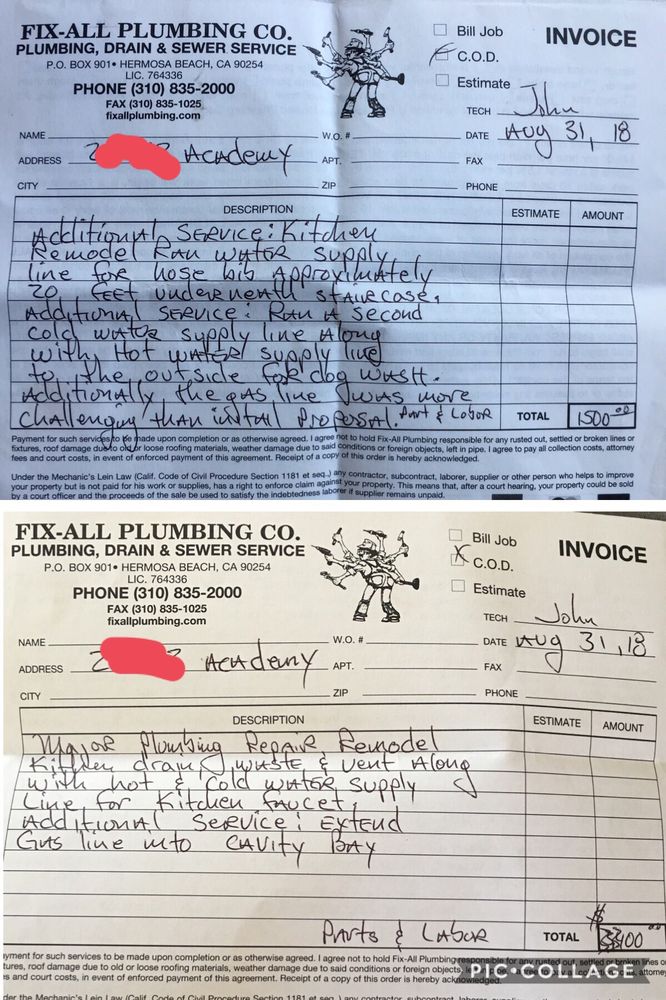 FIX-ALL PLUMBING CO.
PLUMBING, DRAIN & SEWER SERVICE
P.O. BOX 901• HERMOSA BEACH, CA 90254
LIC. 764336
PHONE (310) 835-2000
FAX (310) 835-1025
fixallplumbing.com
Bill Job
C.O.D.
Estimate
INVOICE
TECH John
DATE Aug 31, 18
NAME
W.O. #
ADDRESS 2 Academy
APT.
FAX
CITY
ZIP
PHONE
DESCRIPTION
ESTIMATE
AMOUNT
Additional Service: Kitchen
Remodel Ran water supply
line for hose bib Approximately
20 feet underneath staircase.
Additional Service: Ran a second
cold water supply line along
with Hot water supply line
to the outside for dog wash.
Additionally the gas line was more
challenging than inital Proposal. Part & Labor
TOTAL 1500.00
Payment for such services to be made upon completion or as otherwise agreed. I agree not to hold Fix-All Plumbing responsible for any rusted out, settled or broken lines or
fixtures, roof damage due to old or loose roofing materials, weather damage due to said conditions or foreign objects, left in pipe. I agree to pay all collection costs, attorney
fees and court costs, in event of enforced payment of this agreement. Receipt of a copy of this order is hereby acknowledged.
Under the Mechanic's Lein Law (Calif. Code of Civil Procedure Section 1181 et seq.) any contractor, subcontract, laborer, supplier or other person who helps to improve
your property but is not paid for his work or supplies, has a right to enforce claim against your property. This means that, after a court hearing, your property could be sold
by a court officer and the proceeds of the sale be used to satisfy the indebtedness laborer if supplier remains unpaid.
FIX-ALL PLUMBING CO.
PLUMBING, DRAIN & SEWER SERVICE
P.O. BOX 901• HERMOSA BEACH, CA 90254
LIC. 764336
PHONE (310) 835-2000
FAX (310) 835-1025
fixallplumbing.com
Bill Job
C.O.D.
Estimate
INVOICE
TECH John
DATE Aug 31, 18
NAME
W.O. #
ADDRESS 2 3 Academy
APT.
FAX
CITY
ZIP
PHONE
DESCRIPTION
ESTIMATE
AMOUNT
Major Plumbing Repair Remodel
Kitchen drain, waste & vent Along
with hot & Cold water supply
Line for Kitchen faucet,
Additional Service: Extend
Gas line into cavity Bay
Parts & Labor
TOTAL
yment for such services to be made upon completion or as otherwise agreed. I agree not to hold Fix-All Plumbing responsible for any rusted out, settled or broken lines o
tures, roof damage due to old or loose roofing materials, weather damage due to said conditions or foreign objects,
es and court costs, in event of enforced payment of this agreement. Receipt of a copy of this order is hereby acknowledged.
PIC•COLLAGE
der the Mechanic's Lein Law (Calif. Code of Civil Procedure Section 1181 et seq.) any contractor, subcontract, laborer,